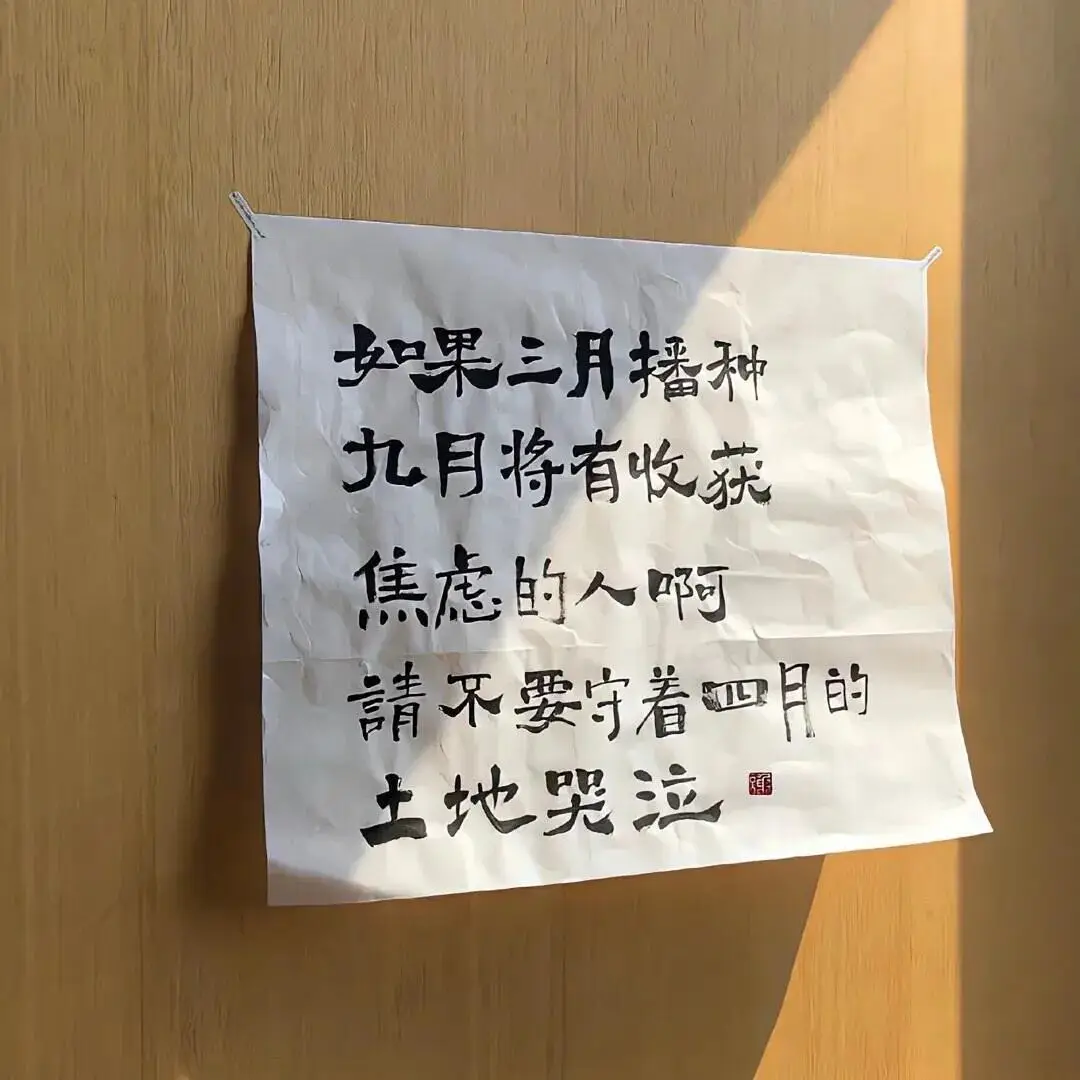 如果三月播种
九月将有收获
焦虑的人啊
請不要守着四月的
土地哭泣